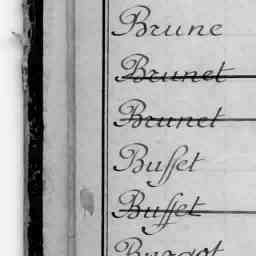 Brune
Brunet
Brunet
Buffet
Buffet